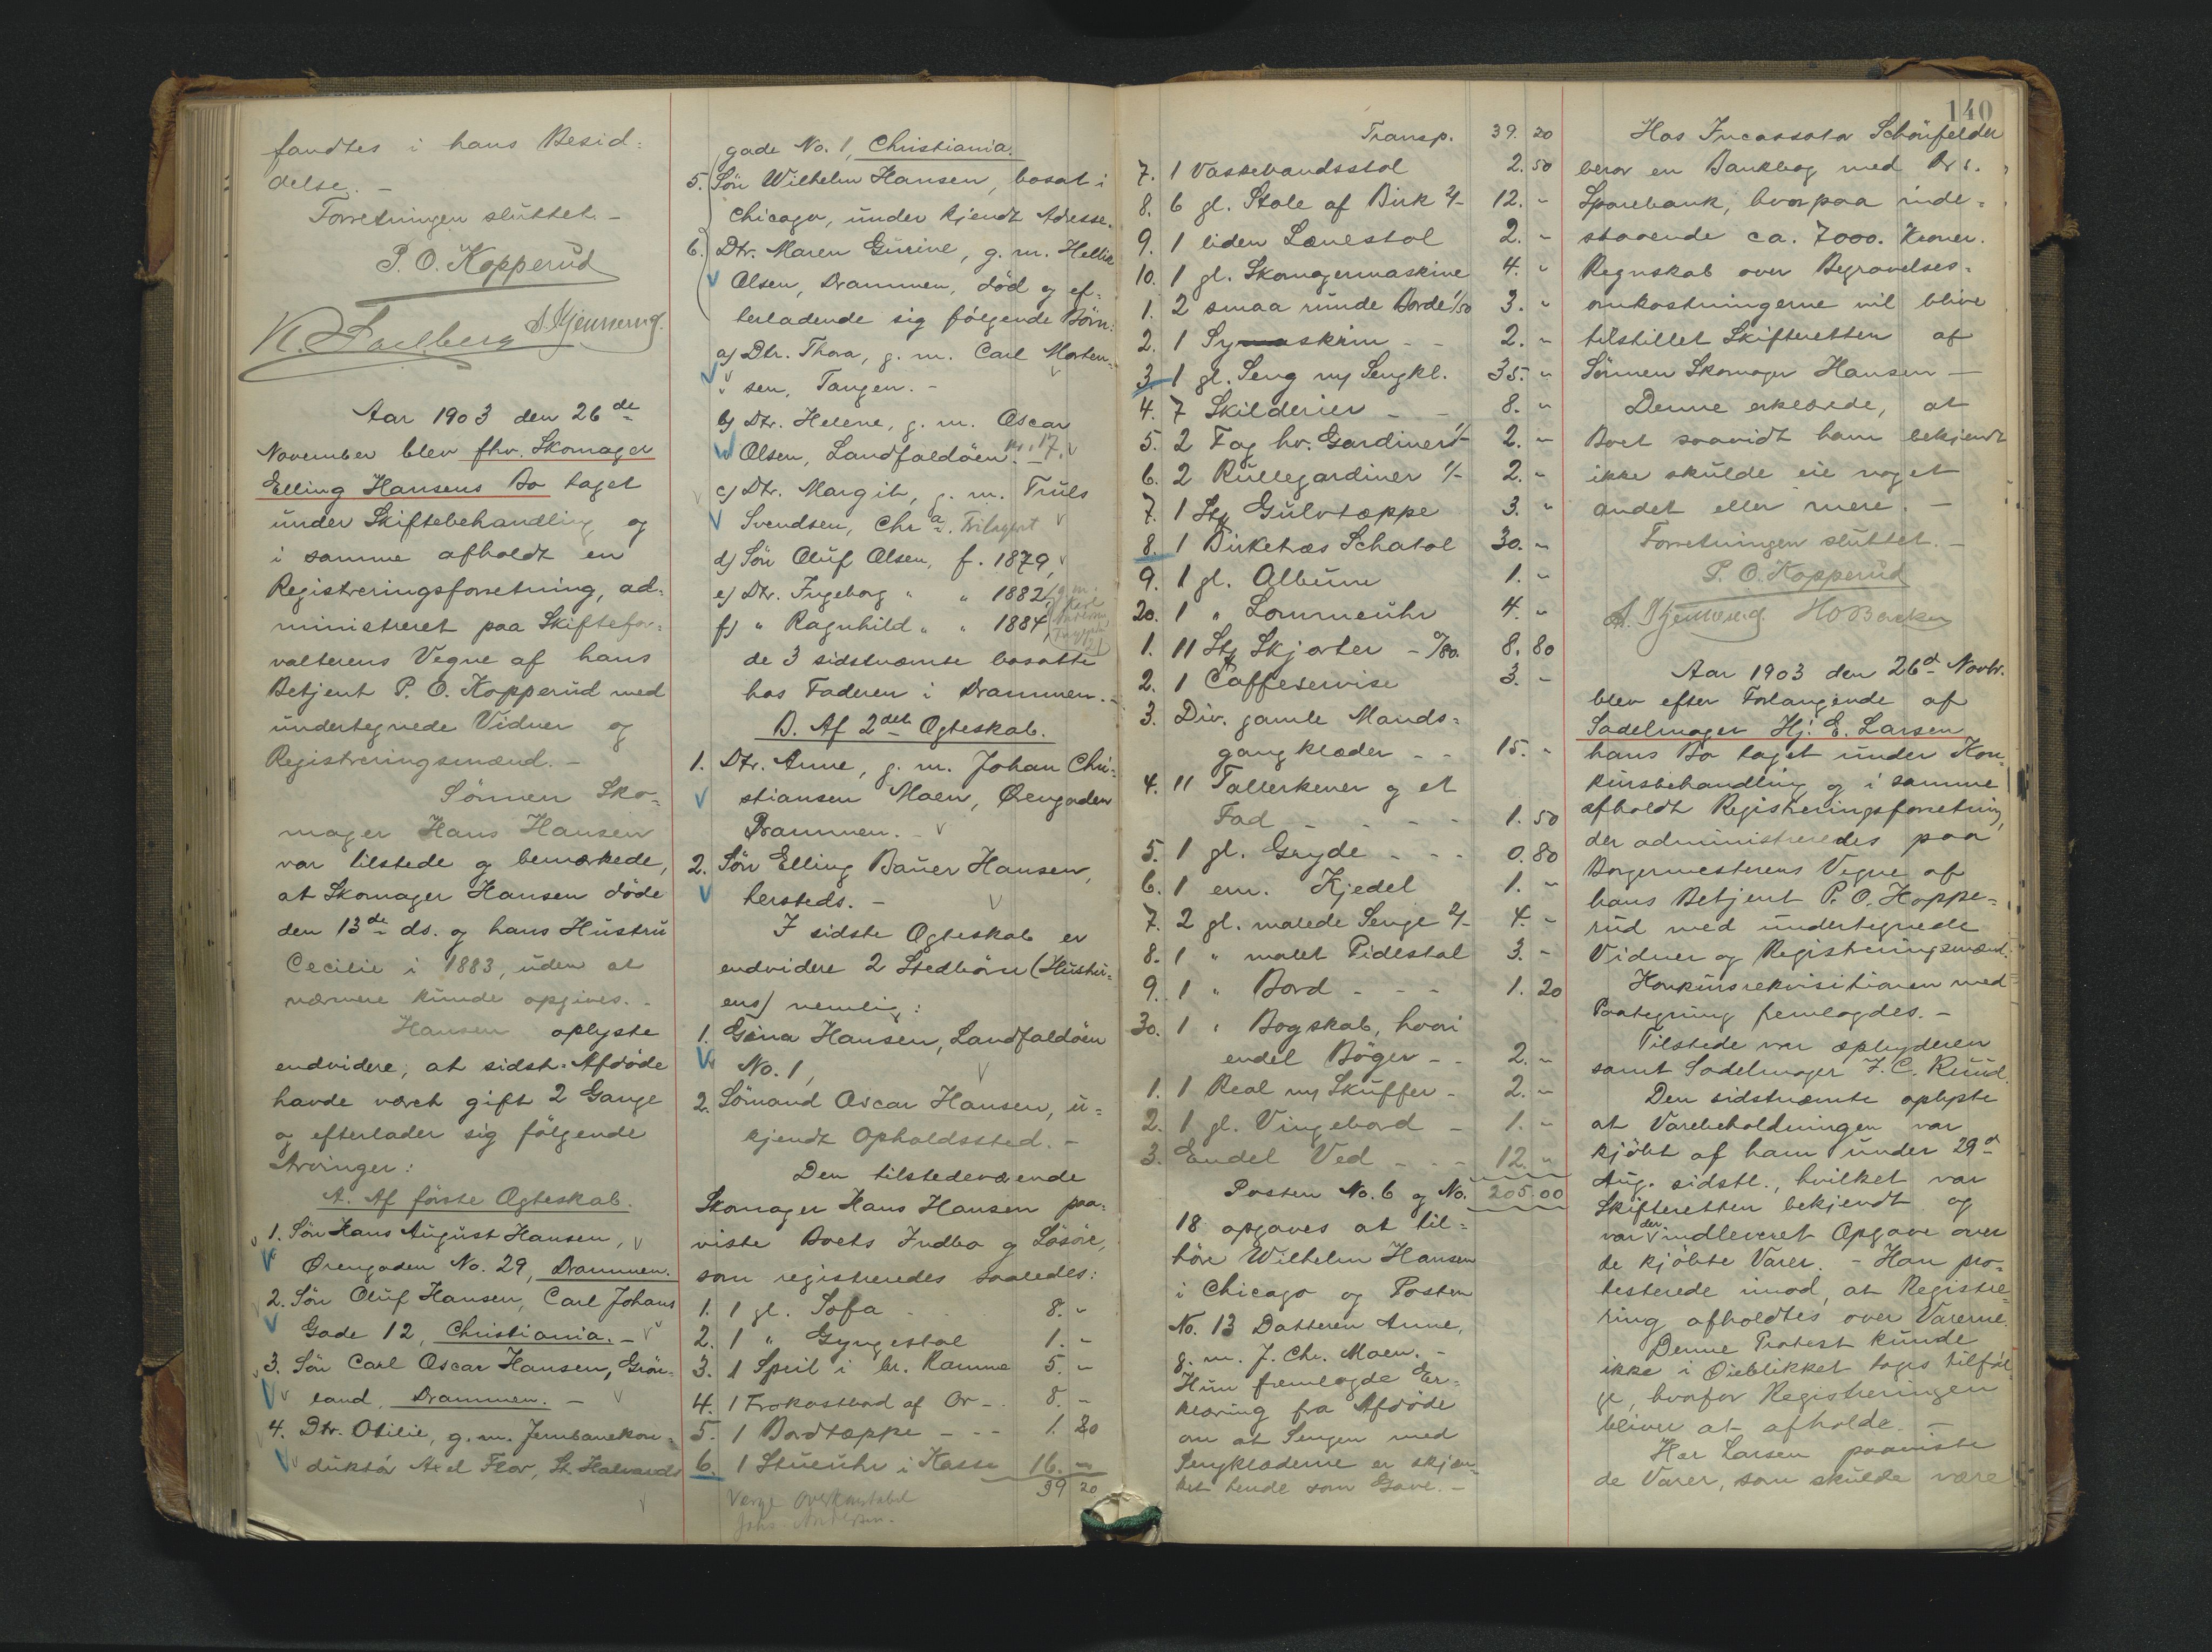 fandtes i hans Besid=
delse. –
Forretningen sluttet. –
P. O. Kopperud
Aar 1903 den 26de
November blev fhv. Skomager
Elling Hansens Bo taget
under Skiftebehandling og
i samme afholdt en
Registreringsforretning, ad=
ministreret paa Skiftefor=
valterens Vegne af hans
Betjent P. O. Kopperud med
undertegnede Vidner og
Registreringsmænd. –
Sönnen Sko=
mager Hans Hansen
var tilstede og bemærkede,
at Skomager Hansen döde
den 13de ds. og hans Hustru
Cecilie i 1883, uden at
nærmere kunde opgives. –
Hansen oplyste
endvidere, at sidst. Afdöde
havde været gift 2 Gange
og efterlader sig fölgende
Arvinger:
A. Af förste Ægteskab.
1. Sön Hans August Hansen,
Örengaden No. 29, Drammen.
2. Sön Oluf Hansen, Carl Johans
Gade 12, Christiania. –
3. Sön Carl Oscar Hansen, Grön=
land, Drammen. –
4. Dtr. Otilie, g. m. Jernbanekon=
duktör Axel Flor, St. Halvards
gade No. 1, Christiania.
5. Sön Wilhelm Hansen, bosat i
Chicago, under kjendt Adresse.
6. Dtr. Maren Gurine, g. m. Hellik
Olsen, Drammen, död og ef=
terladende sig fölgende Börn:
a) Dtr. Thora, g. m. Carl Morten=
sen, Tangen. –
b) Dtr. Helene, g. m. Oscar
Olsen, Landfaldöen. 17.
c) Dtr. Margit, g. m. Truls
Svendsen, Chra.
d) Sön Oluf Olsen, f. 1879,
e) Dtr. Ingeborg " " 1882,
f) " Ragnhild " " 1884,
de 3 sidstnæmte bosatte
hos Faderen i Drammen. –
B. Af 2det Ægteskab.
1. Dtr. Anne, g. m. Johan Chri=
stiansen Moen, Örengaden
Drammen. –
2. Sön Elling Bauer Hansen,
hersteds. –
I sidste Ægteskab er
endvidere 2 Stedbörn (Hustru=
ens) nemlig:
1. Gina Hansen, Landfaldöen
No. 1,
2. Sömand Oscar Hansen, u=
kjendt Opholdssted. –
Den tilstedeværende
Skomager Hans Hansen paa=
viste Boets Indbo og Lösöre,
som registreredes saaledes:
1. 1 gl. Sofa 8. "
2. 1 " Gyngestol 1. –
3. 1 Speil i br. Ramme 5. "
4. 1 Frokostbord af Or – 8. –
5. 1 Bordtæppe – – – 1. 20
6. 1 Stueuhr i Kasse 16. "
39 20
Verge Overkonstabel
Johs. Andersen.
140
Transp. 39. 20
7. 1 Vaskevandsstol 2. 50
8. 6 gl. Stole af Birk 2/– 12. –
9. 1 liden Lænestol 2. –
10. 1 gl. Skomagermaskine 4. "
1. 2 smaa runde Borde 1/50 3. "
2. 1 Syskrin – – 2. –
3. 1 gl. Seng m/ Sengkl. 35. "
4. 7 Skilderier – – 8. "
5. 2 Fag hv. Gardiner 1/– 2. –
6. 2 Rullegardiner 1/– 2. –
7. 1 Stk Gulvtæppe 3. "
8. 1 Birketræs Schatol 30. –
9. 1 gl. Album 1. –
20. 1 " Lommeuhr 4. "
1. 11 Stk Skjorter – 0/80. 8. 80
2. 1 Caffeservise 3. –
3. Div. gamle Mands=
gangklæder – – 15. –
4. 11 Tallerkener og et
Fad – – – – 1. 50
5. 1 gl. Gryde – – – 0. 80
6. 1 em. Kjedel 1. –
7. 2 gl. malede Senge 2/– 4. –
8. 1 " malet Pidestal 3. –
9. 1 " Bord – – – 1. 20
30. 1 " Bogskab, hvori
endel Böger – – 2. –
1. 1 Reol m/ Skuffer – 2. –
2. 1 gl. Vingebord – 1. –
3. Endel Ved – – – 12. "
205.00
Posten No. 6 og No.
18 opgaves at til=
höre Wilhelm Hansen
i Chicago og Posten
No. 13 Datteren Anne,
g. m. J. Chr. Moen. –
Hun fremlagde Er=
klæring fra Afdöde
om at Sengen med
Sengklæderne er skjæn=
ket hende som Gave. –
Hos Incassator Schönfelder
beror en Bankbog med Dr s.
Sparebank, hvorpaa inde=
staaende ca. 7000. Kroner.
Regnskab over Begravelses=
omkostningerne vil blive
tilstillet Skifteretten af
Sönnen Skomager Hansen –
Denne erklærede, at
Boet saavidt ham bekjendt
ikke skulde eie noget
andet eller mere. –
Forretningen sluttet. –
P. O. Kopperud
Aar 1903 den 26d Novbr.
blev efter Forlangende af
Sadelmager Hj. E. Larsen
hans Bo taget under Kon=
kursbehandling og i samme
afholdt Registreringsforretning,
der administreredes paa
Borgermesterens Vegne af
hans Betjent P. O. Koppe=
rud med undertegnede
Vidner og Registreringsmænd.
Konkursrekvisitionen med
Paategning fremlagdes. –
Tilstede var opbyderen
samt Sadelmager F. C. Ruud.
Den sidstnæmte oplyste
at Varebeholdningen var
kjöbt af ham under 29d
Aug. sidstl., hvilket var
Skifteretten bekjendt og
var der indleveret Opgave over
de kjöbte Varer. – Han pro=
testerede imod, at Registre=
ring afholdtes over Varerne.
Denne Protest kunde
ikke i Öieblikket tages tilföl=
ge, hvorfor Registreringen
bliver at afholde. –
Hr Larsen paaviste
de Varer, som skulde være